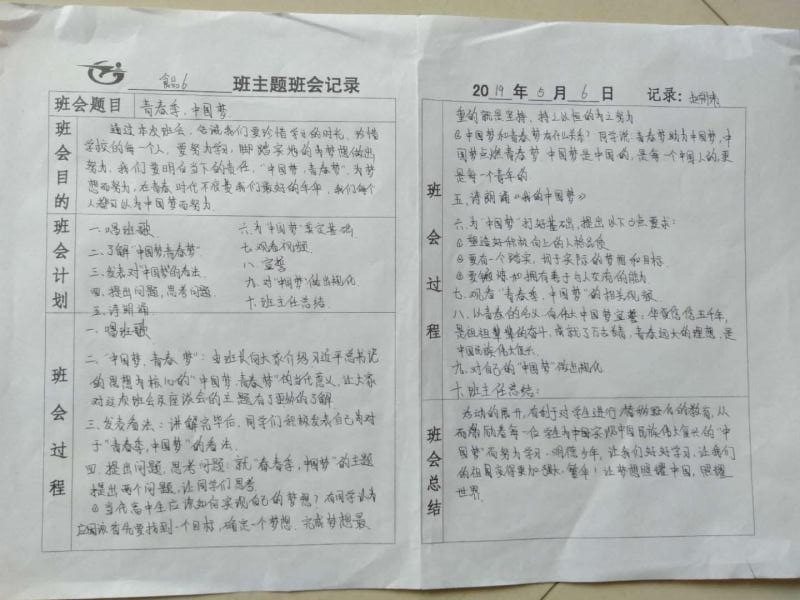 食品6 班主题班会记录
班会题目 青春季,中国梦
班会目的
通过本次班会,告诫我们要珍惜学习的时光,珍惜
学校的每一个人,要努力学习,脚踏实地的为梦想做出
努力,我们要明白当下的责任,"中国梦,青春梦",为梦
想而努力,在青春时代不浪费我们最好的年华,我们每个
人都可以为中国梦而努力.
班会计划
一.唱班歌
二.了解"中国梦青春梦"
三.发表对"中国梦"的看法.
四.提出问题,思考问题.
五.诗朗诵
六.为"中国梦"奠定基础
七.观看视频.
八.宣誓
九.对"中国梦"做出规化
十.班主任总结.
班会过程
一.唱班歌
二."中国梦,青春梦":由班长向大家介绍习近平总书记
的思想为核心的"中国梦,青春梦"的当代意义,让大家
对这次班会及座谈会的主题有了更的了解
三.发表看法:讲解完毕后,同学们积极发表自己对
于"青春季,中国梦"的看法.
四.提出问题,思考问题:就"春春季,中国梦"的主题
提出两个问题,让同学们思考
①当代高中生应该如何实现自己的梦想?有同学认为
应该首先要找到一个目标,确定一个梦想.完成梦想最
2019年5月6日 记录:
班会过程
重的就是坚持,持之以恒的为之努力
②中国梦和青春梦有什么关系?同学说:青春梦助力中国梦,中
国梦点燃青春梦 中国梦是中国的,是每一个中国人的,更
是每一个青年的
五.诗朗诵《我的中国梦》
六.为"中国梦"打好基础,提出以下几点要求:
①塑造好积极向上的人格品质
②要有一个踏实,切于实际的梦想和目标
③要敏捷如拥有善于与人交友的能力
七.观看"青春季,中国梦"的相关视频.
八.以青春的名义,向伟大中国梦宣誓:华夏悠悠五千年,
是祖祖辈辈的奋斗,成就了万古晴,青春远大的理想,是
中国民族伟大复兴.
九.对自己的"中国梦"做出规化
十.班主任总结:
班会总结
活动的展开,有利于对学生进行的教育,从
而激励着每一位学生为中国实现中国民族伟大复兴的"中
国梦"而努力学习.明德少年,让我们好好学习,让我们
的祖国变得更加强大,繁华!让梦想照耀中国,照耀
世界.